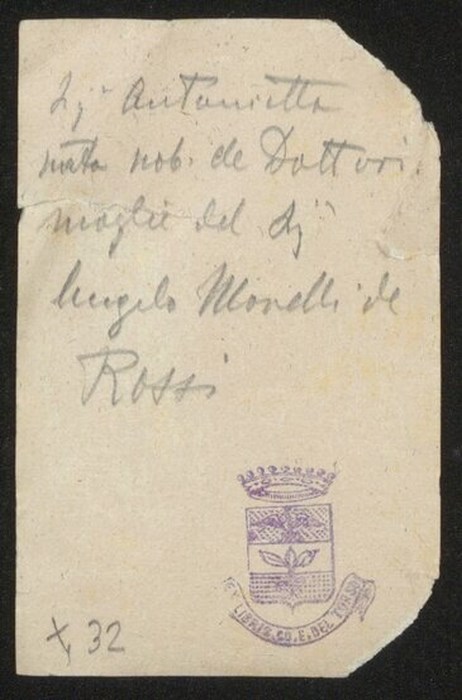 Sig.ª Antonietta
nata nob. de Dottori
moglie del Sig.
Angelo Morelli de
Rossi
EX LIBRIS. CO. E. DEL TORSO
X, 32